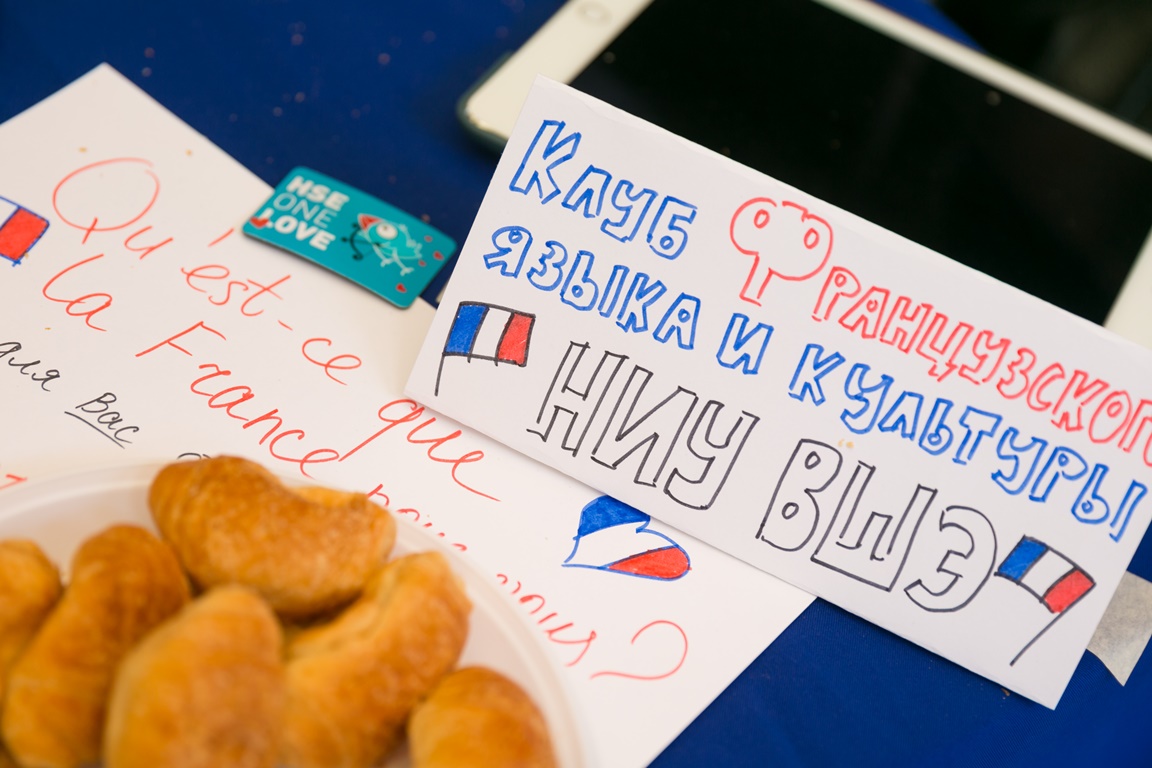 Qu'est-ce que
la France
pour
vous?
для Вас
HSE
ONE
LOVE
Клуб Французского
языка и культуры
НИУ ВШЭ